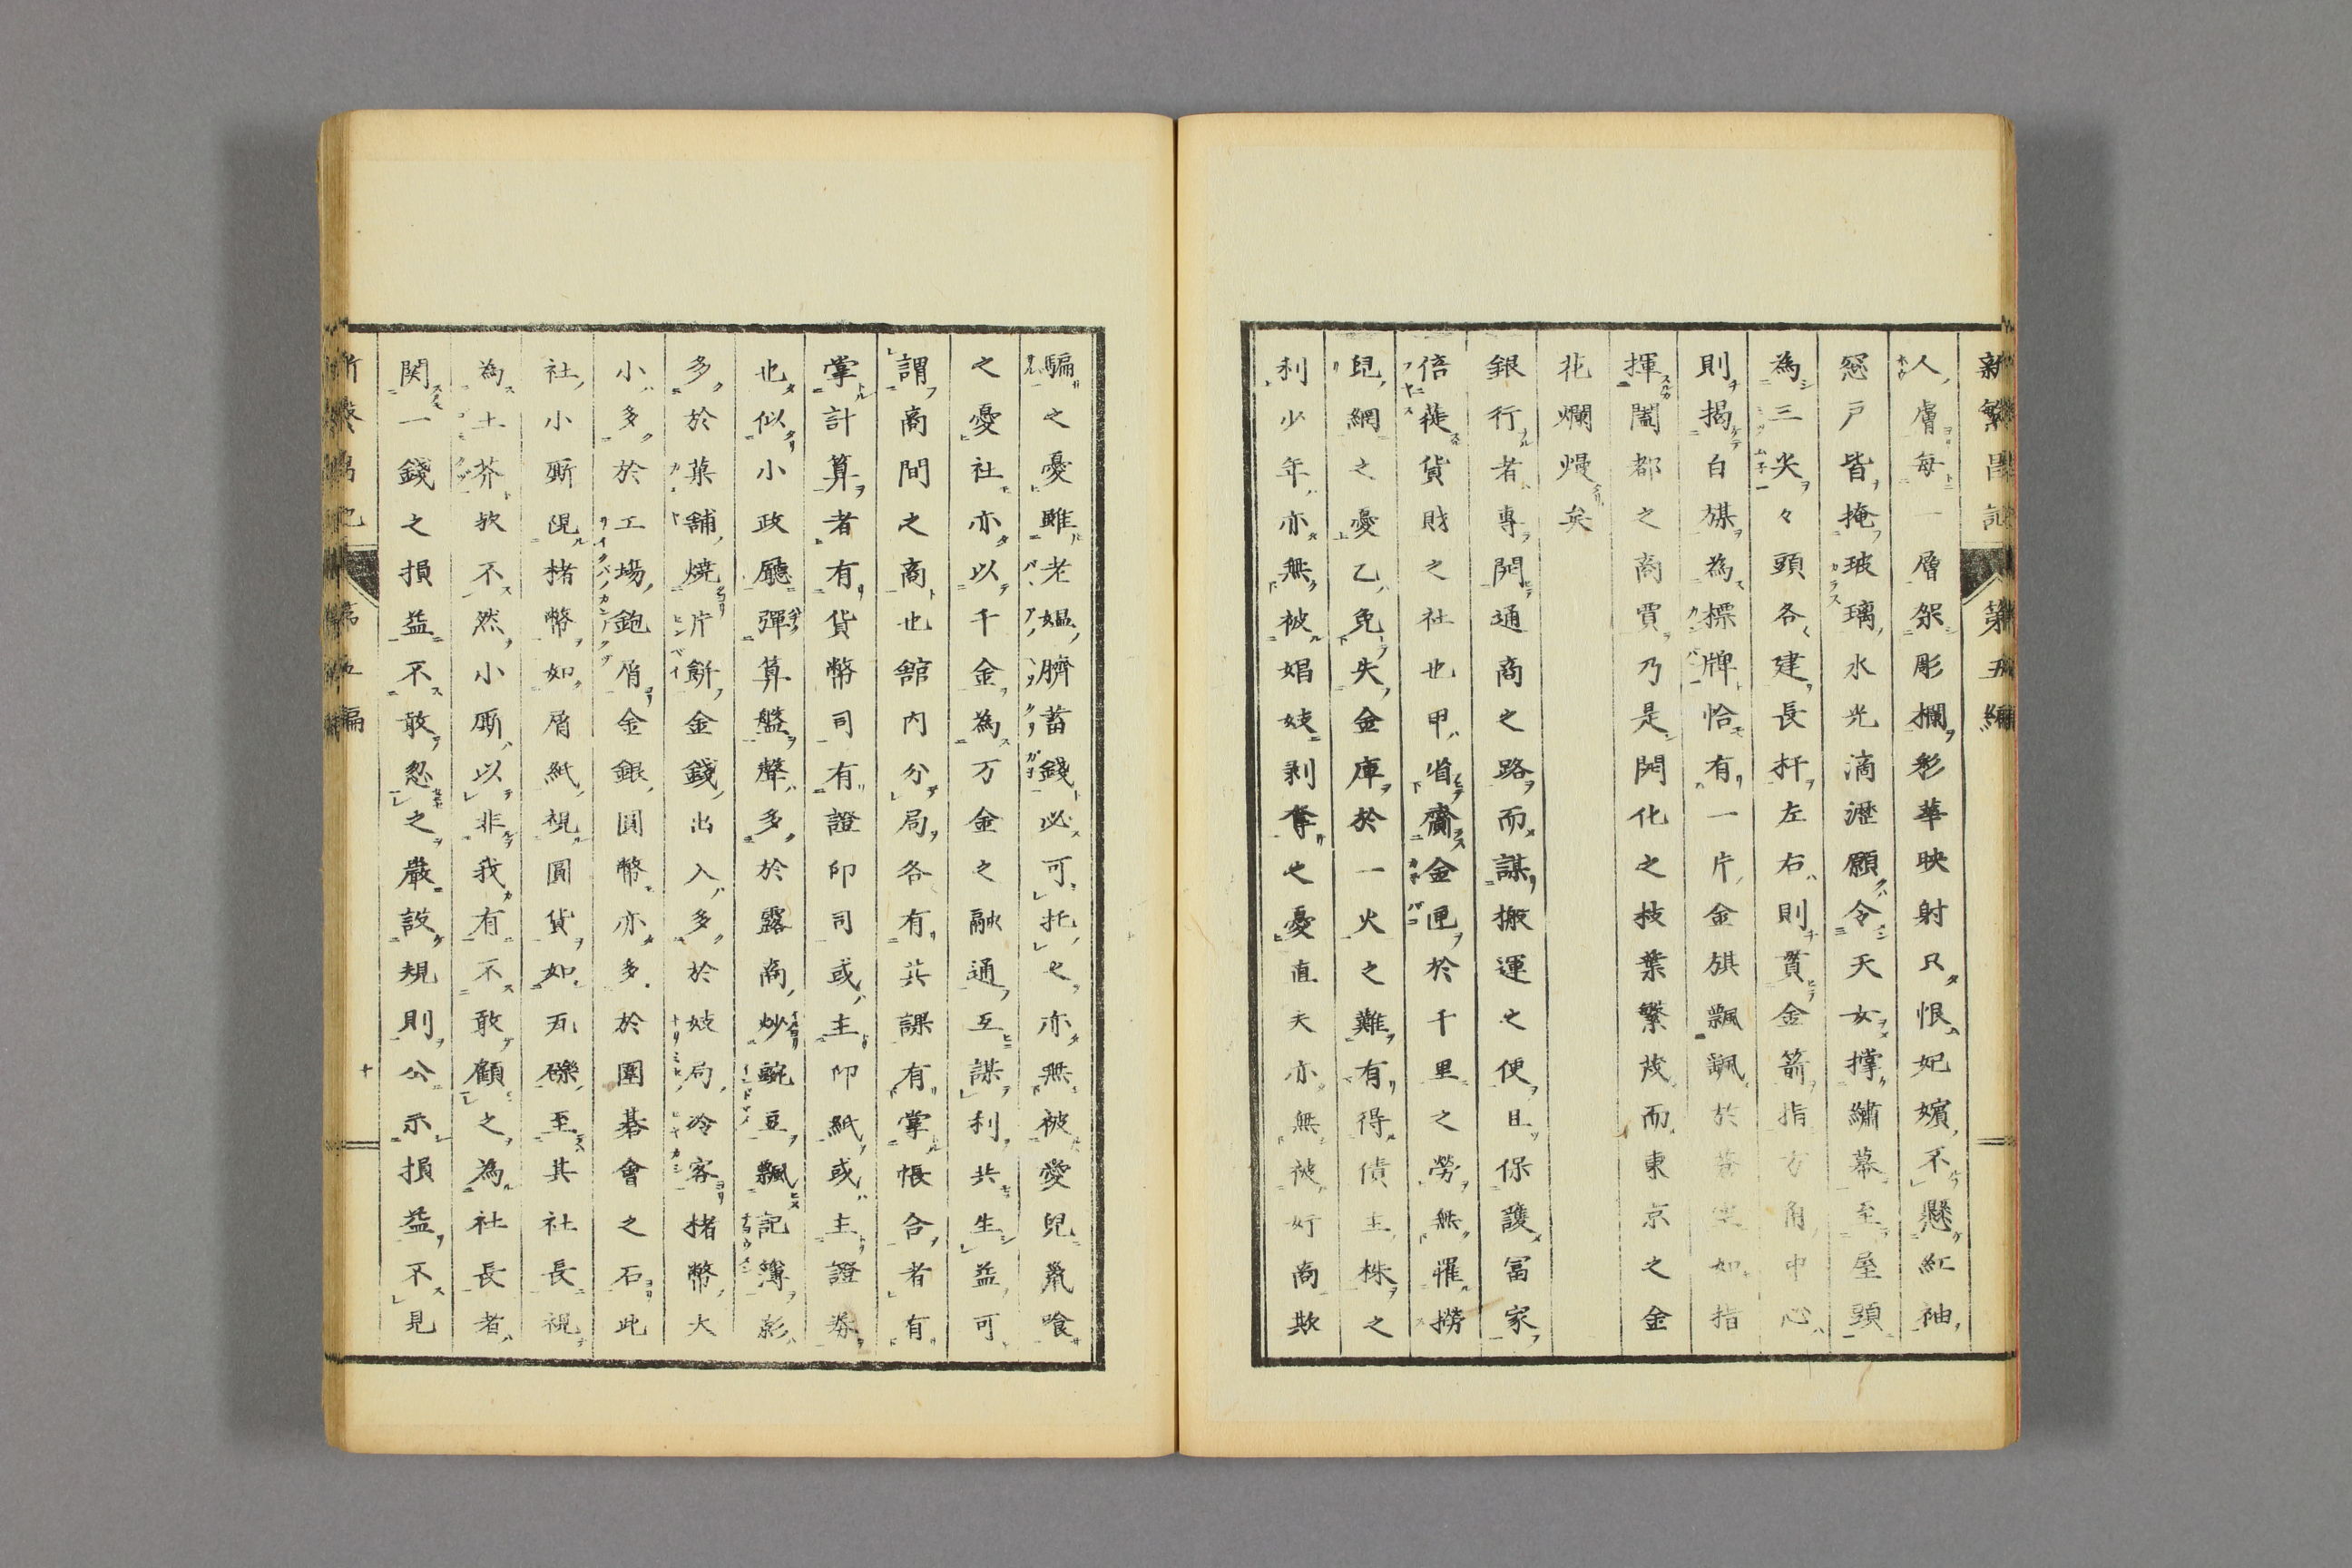 新繁昌記 第五編
人膚每一層架彫欄彩華映射只恨妃嬪不懸紅袖
窓戸皆掩玻璃水光滴瀝願令天女撑繡幕至屋頭
為三尖々頭各建長杆左右則貫金箭指方角中心
則揭白旗為標牌恰有一片金旗飄飄於蒼空如指
揮闔都之商賈乃是開化之枝葉繁茂而東京之金
花爛熳矣
銀行者專開通商之路而謀搬運之便且保護冨家
倍蓰貨財之社也甲省齎金匣於千里之勞無罹撈
兒網之憂乙免失金庫於一火之難有得債主株之
利少年亦無被娼妓剥奪之憂直夫亦無被奸商欺
騙之憂雖老媼臍蓄錢必可托之亦無被愛兒鼠喰
之憂社亦以千金為万金之融通互謀利共生益可
謂商間之商也舘内分局各有其課有掌帳合者有
掌計算者有貨幣司有證印司或主印紙或主證券
也似小政廳彈算盤聲多於露商炒豌豆飄記簿影
多於菓舖燒片餅金錢出入多於妓局冷客楮幣大
小多於工場鉋屑金銀圓幣亦多於圍碁會之石此
社小厮睨楮幣如屑紙視圓貨如瓦礫至其社長視
為土芥歟不然小厮以非我有不敢顧之為社長者
関一錢之損益不敢忽之嚴設規則公示損益不見
十